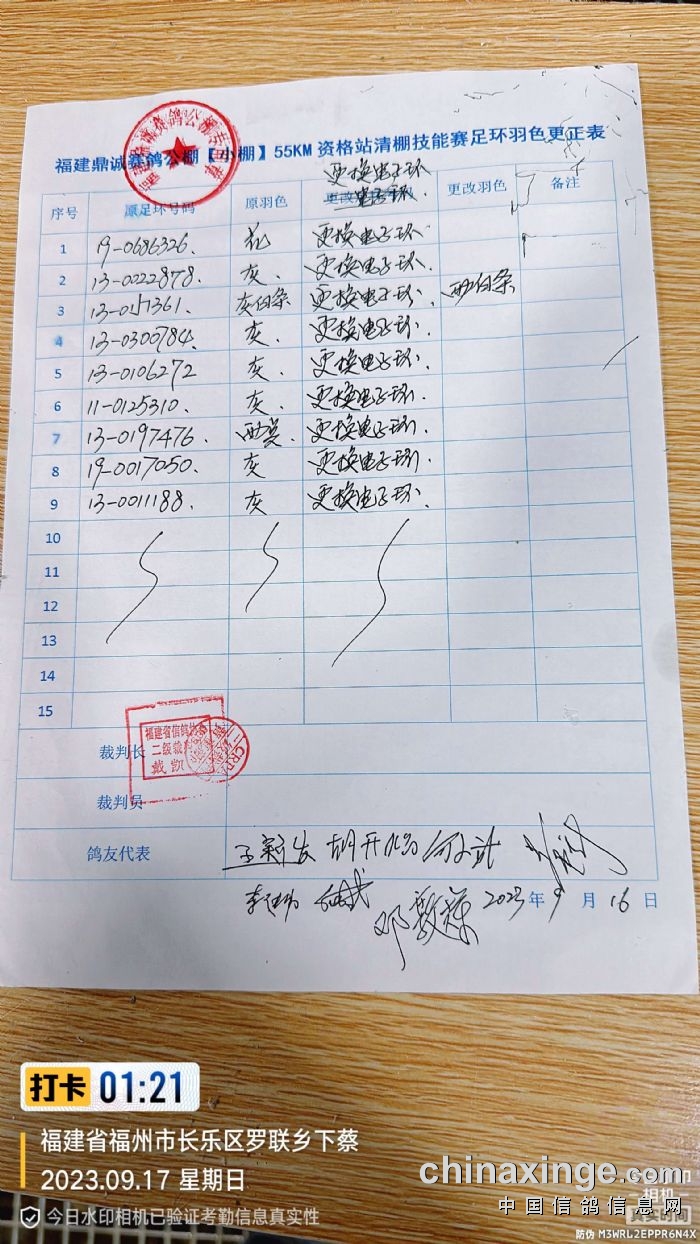 福建鼎诚赛鸽公棚【小棚】55KM 资格站清棚技能赛足环羽色更正表
更换电子环
序号 原足环号码 原羽色 更改羽色 备注
1 19-0686326. 花 更换电子环
2 13-0022878. 灰. 更换电子环.
3 灰白条 更换电子环. 雨白条
4 13-0300784. 灰. 更换电子环.
5 13-0106272 灰. 更换电子环.
6 11-0125310. 灰. 更换电子环.
7 13-0197476. 更换电子环.
8 19-0017050. 灰 更换电子环.
9 13-0011188. 灰 更换电子环.
10
11
12
13
14
15
裁判长
福建省信鸽协会
二级裁判
戴凯
裁判员
鸽友代表
2023 年 9 月 16 日
打卡 01:21
福建省福州市长乐区罗联乡下蔡
2023.09.17 星期日
今日水印相机已验证考勤信息真实性
chinaxinge.com
中国信鸽信息网
相机
真实时间
防伪 M3WRL2EPPR6N4X